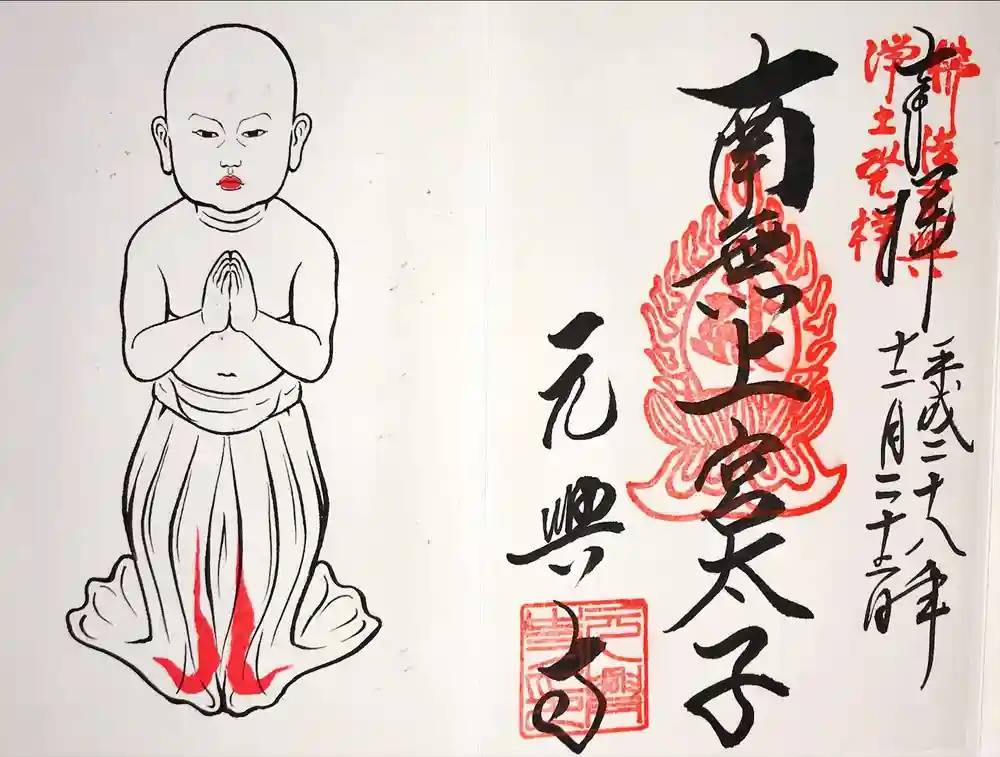 奉拝
佛法元興
淨土発祥
平成二十八年
十二月二十日
南無上宮太子
元興寺
元興
寺印